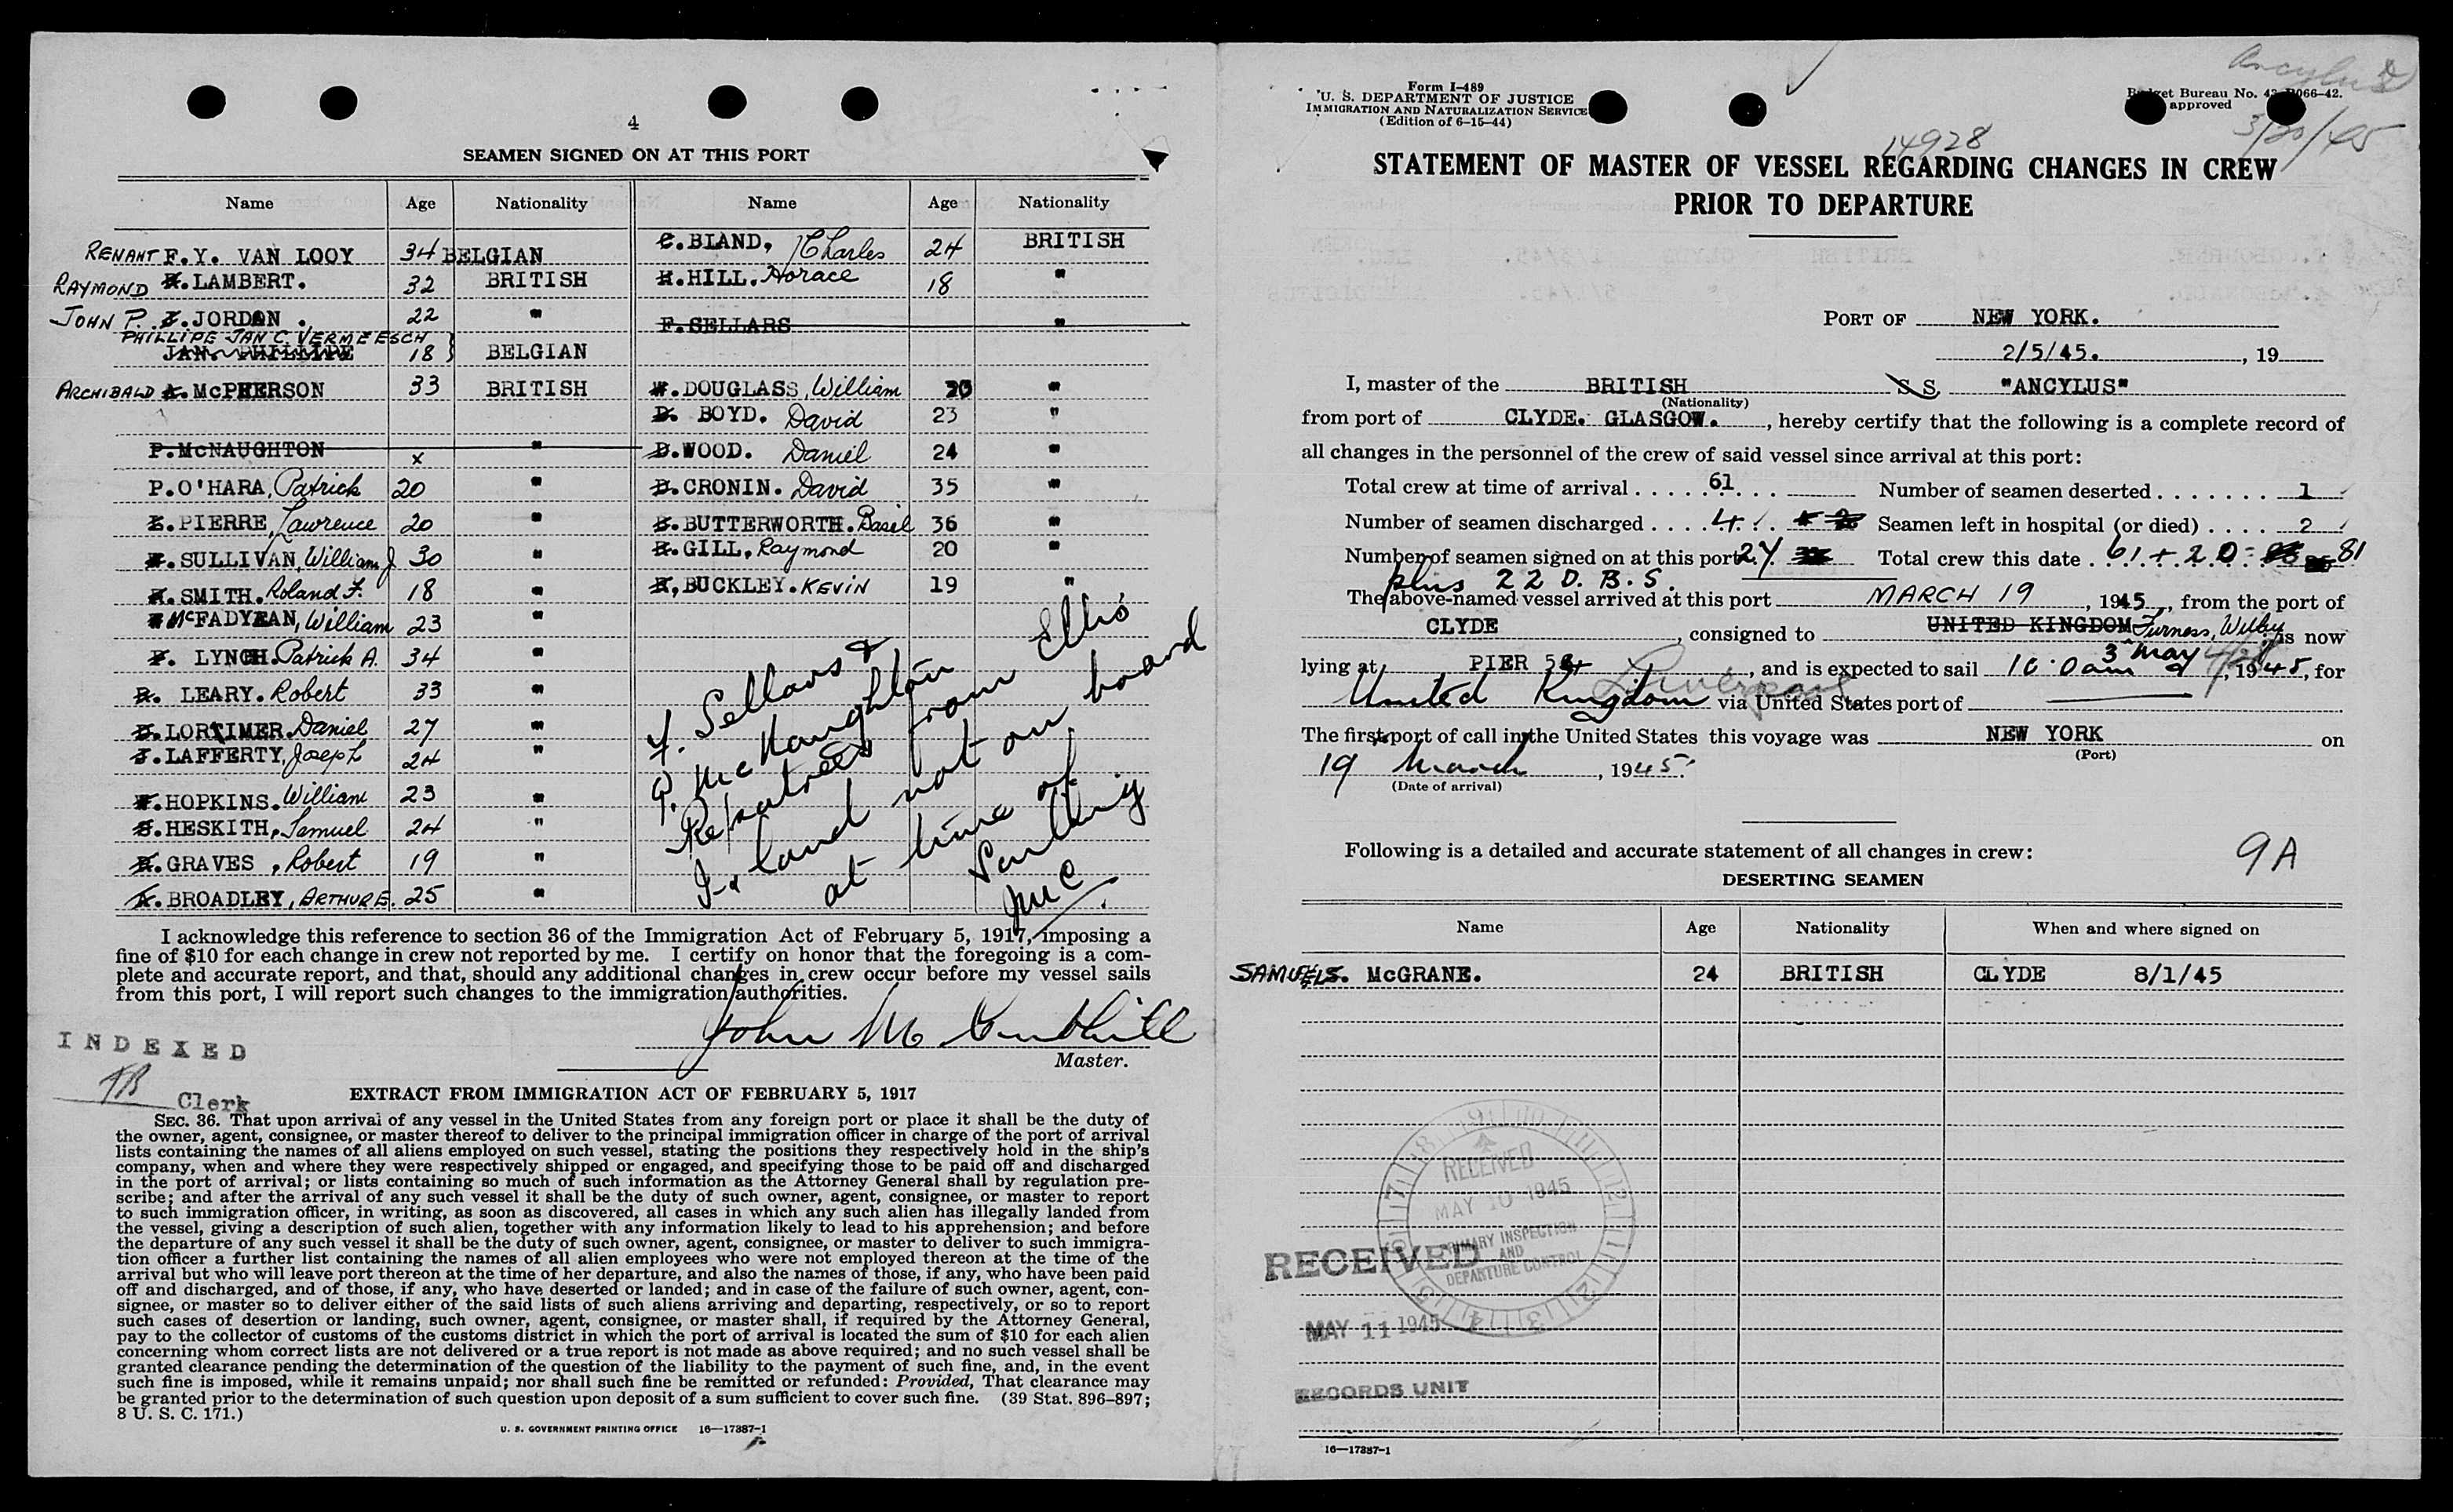 4
SEAMEN SIGNED ON AT THIS PORT
Name Age Nationality Name Age Nationality
RENANT F.Y. VAN LOOY 34 BELGIAN C.BLAND, Charles 24 BRITISH
RAYMOND R.LAMBERT. 32 BRITISH H.HILL. Horace 18 "
JOHN P. J.JORDAN . 22 " F.SELLARS "
PHILLIPE JAN C. VERMEESCH
JAN. PHILLIPE 18 BELGIAN
ARCHIBALD A. McPHERSON 33 BRITISH W.DOUGLASS, William 20 "
D. BOYD. David 23 "
P.McNAUGHTON x " D.WOOD. Daniel 24 "
P.O'HARA, Patrick 20 " D.CRONIN. David 35 "
L.PIERRE, Lawrence 20 " B.BUTTERWORTH. Basil 36 "
W.SULLIVAN, William J 30 " R.GILL, Raymond 20 "
R.SMITH. Roland F. 18 " K,BUCKLEY. KEVIN 19 "
McFADYEAN, William 23 "
P. LYNCH. Patrick A. 34 "
R. LEARY. Robert 33 "
D.LORTIMER. Daniel 27 "
J.LAFFERTY, Joseph 24 "
W.HOPKINS. William 23 "
S.HESKITH, Samuel 24 "
R.GRAVES , Robert 19 "
A.BROADLEY, ARTHUR E. 25 "
F. Sellars &
P. McNaughton
Repatrees from Ellis
Island not on board
at time of
Sailing
JMC
I acknowledge this reference to section 36 of the Immigration Act of February 5, 1917, imposing a
fine of $10 for each change in crew not reported by me. I certify on honor that the foregoing is a com-
plete and accurate report, and that, should any additional changes in crew occur before my vessel sails
from this port, I will report such changes to the immigration authorities.
John M
Master.
INDEXED
Clerk
EXTRACT FROM IMMIGRATION ACT OF FEBRUARY 5, 1917
SEC. 36. That upon arrival of any vessel in the United States from any foreign port or place it shall be the duty of
the owner, agent, consignee, or master thereof to deliver to the principal immigration officer in charge of the port of arrival
lists containing the names of all aliens employed on such vessel, stating the positions they respectively hold in the ship's
company, when and where they were respectively shipped or engaged, and specifying those to be paid off and discharged
in the port of arrival; or lists containing so much of such information as the Attorney General shall by regulation pre-
scribe; and after the arrival of any such vessel it shall be the duty of such owner, agent, consignee, or master to report
to such immigration officer, in writing, as soon as discovered, all cases in which any such alien has illegally landed from
the vessel, giving a description of such alien, together with any information likely to lead to his apprehension; and before
the departure of any such vessel it shall be the duty of such owner, agent, consignee, or master to deliver to such immigra-
tion officer a further list containing the names of all alien employees who were not employed thereon at the time of the
arrival but who will leave port thereon at the time of her departure, and also the names of those, if any, who have been paid
off and discharged, and of those, if any, who have deserted or landed; and in case of the failure of such owner, agent, con-
signee, or master so to deliver either of the said lists of such aliens arriving and departing, respectively, or so to report
such cases of desertion or landing, such owner, agent, consignee, or master shall, if required by the Attorney General,
pay to the collector of customs of the customs district in which the port of arrival is located the sum of $10 for each alien
concerning whom correct lists are not delivered or a true report is not made as above required; and no such vessel shall be
granted clearance pending the determination of the question of the liability to the payment of such fine, and, in the event
such fine is imposed, while it remains unpaid; nor shall such fine be remitted or refunded: Provided, That clearance may
be granted prior to the determination of such question upon deposit of a sum sufficient to cover such fine. (39 Stat. 896-897;
8 U. S. C. 171.)
U. S. GOVERNMENT PRINTING OFFICE 16—17387-1
Ancylus
3/20/45
Form I-489
U. S. DEPARTMENT OF JUSTICE
IMMIGRATION AND NATURALIZATION SERVICE
(Edition of 6-15-44)
Budget Bureau No. 43-R066-42.
approved
14928
STATEMENT OF MASTER OF VESSEL REGARDING CHANGES IN CREW
PRIOR TO DEPARTURE
PORT OF NEW YORK.
2/5/45. , 19
I, master of the BRITISH S S. "ANCYLUS"
(Nationality)
from port of CLYDE. GLASGOW. , hereby certify that the following is a complete record of
all changes in the personnel of the crew of said vessel since arrival at this port:
Total crew at time of arrival 61 Number of seamen deserted 1
Number of seamen discharged 4 Seamen left in hospital (or died) 2
Number of seamen signed on at this port 27 Total crew this date 61 + 20 = 81
plus 22 D.B.S.
The above-named vessel arrived at this port MARCH 19 , 1945 , from the port of
CLYDE , consigned to UNITED KINGDOM Furness, Withy is now
lying at PIER 54 , and is expected to sail 10.0am 3 May , 1945, for
United Kingdom Liverpool via United States port of
The first port of call in the United States this voyage was NEW YORK on
(Port)
19 March , 1945.
(Date of arrival)
9A
Following is a detailed and accurate statement of all changes in crew:
DESERTING SEAMEN
Name Age Nationality When and where signed on
SAMUEL S. McGRANE. 24 BRITISH CLYDE 8/1/45
RECEIVED
MAY 10 1945
PRIMARY INSPECTION
AND
DEPARTURE CONTROL
RECEIVED
MAY 11 1945
RECORDS UNIT
16—17387-1